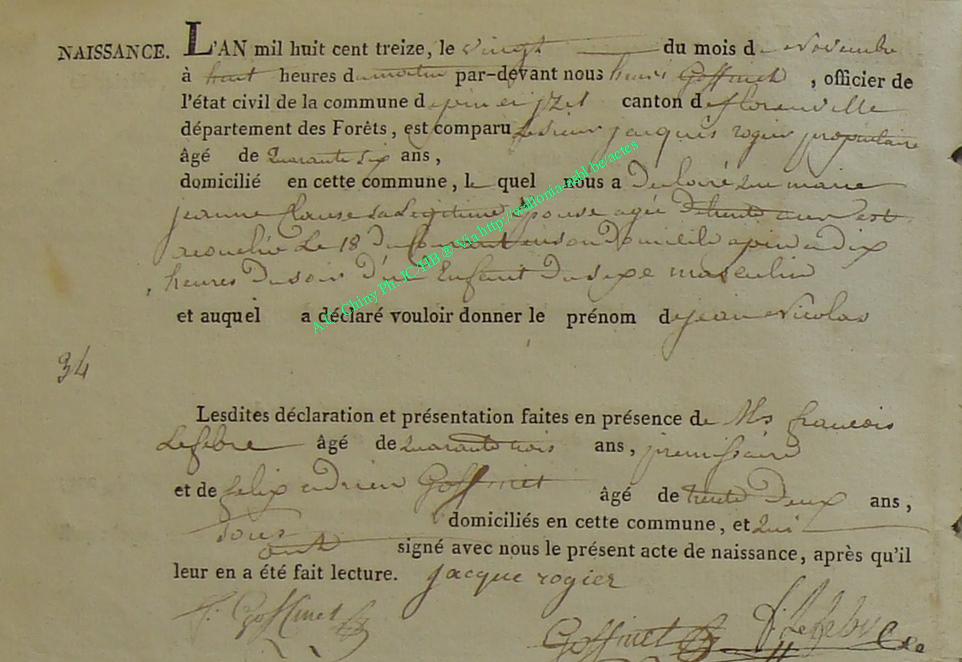 NAISSANCE. L'AN mil huit cent treize, le vingt du mois de Novembre
à huit heures du matin par-devant nous henri Goffinet, officier de
l'état civil de la commune de pin et izel canton de florenville
département des Forêts, est comparu Le sieur jacques rogier propriétaire
âgé de Quarante six ans,
domicilié en cette commune, le quel nous a Declaré que marie
jeanne Clause sa Legitime épouse agée De trente un est
acouchée Le 18 Du Courant en son Domicile a pin a dix
heures Du soir d'un Enfant Du sexe masculin
et auquel a déclaré vouloir donner le prénom de jean Nicolas
A.E. Chiny Ph. JC HB @ Via http://wallonia-asbl.be/actes
34
Lesdites déclaration et présentation faites en présence de Mrs francois
Lefebre âgé de quarante trois ans,
et de felix adrien Goffinet âgé de trente Deux ans,
tous domiciliés en cette commune, et Qui
ont signé avec nous le présent acte de naissance, après qu'il
leur en a été fait lecture. jacque rogier
f. Goffinet Goffinet f. Lefebvre